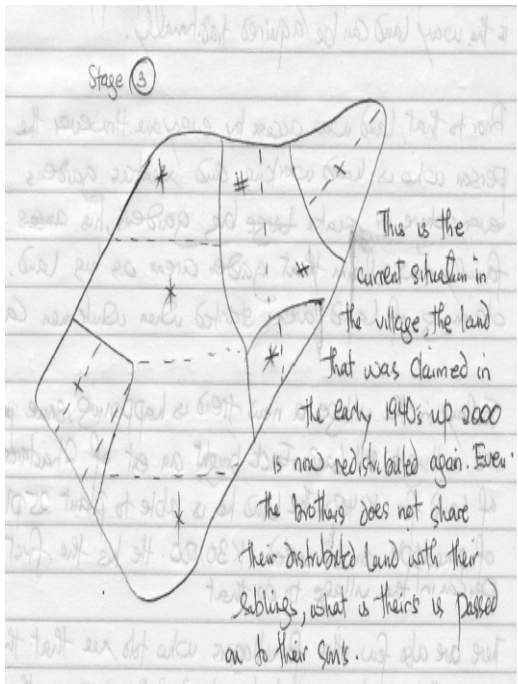 Stage 3
This is the
current situation in
the village, the land
that was claimed in
the early 1940's up 2000
is now redistributed again. Even
the brothers does not share
their distributed land with their
siblings, what is their's is passed
on to their son's.